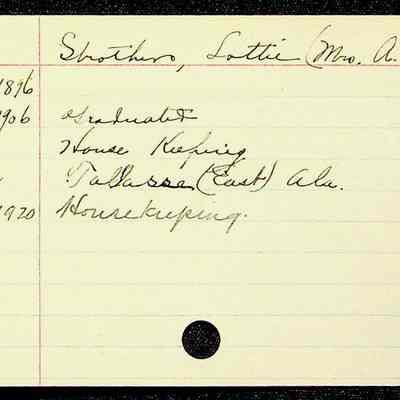 Strothers, Lottie (Mrs. A.
1896
1906 Graduated
House Keeping
Tallassee (East) Ala.
1920 Housekeeping.